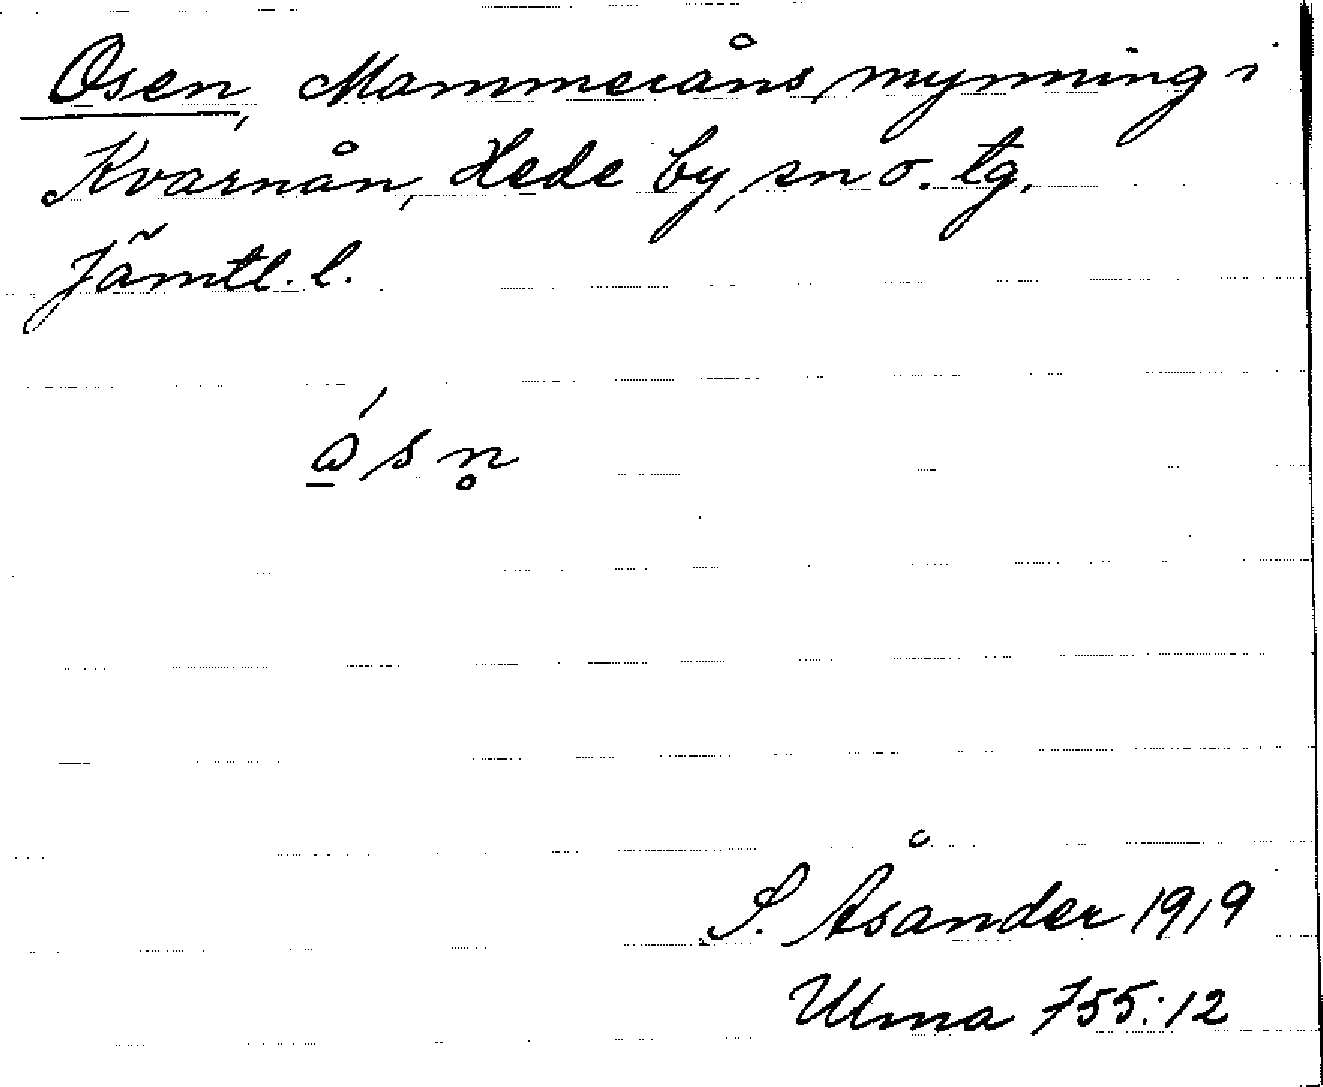 Osen, Mammeråns mynning i
Kvarnån, Hede by, sn o. tg,
Jämtl. l.
ǻ̲ s n̥
S. Åsander 1919
Ulma 755:12